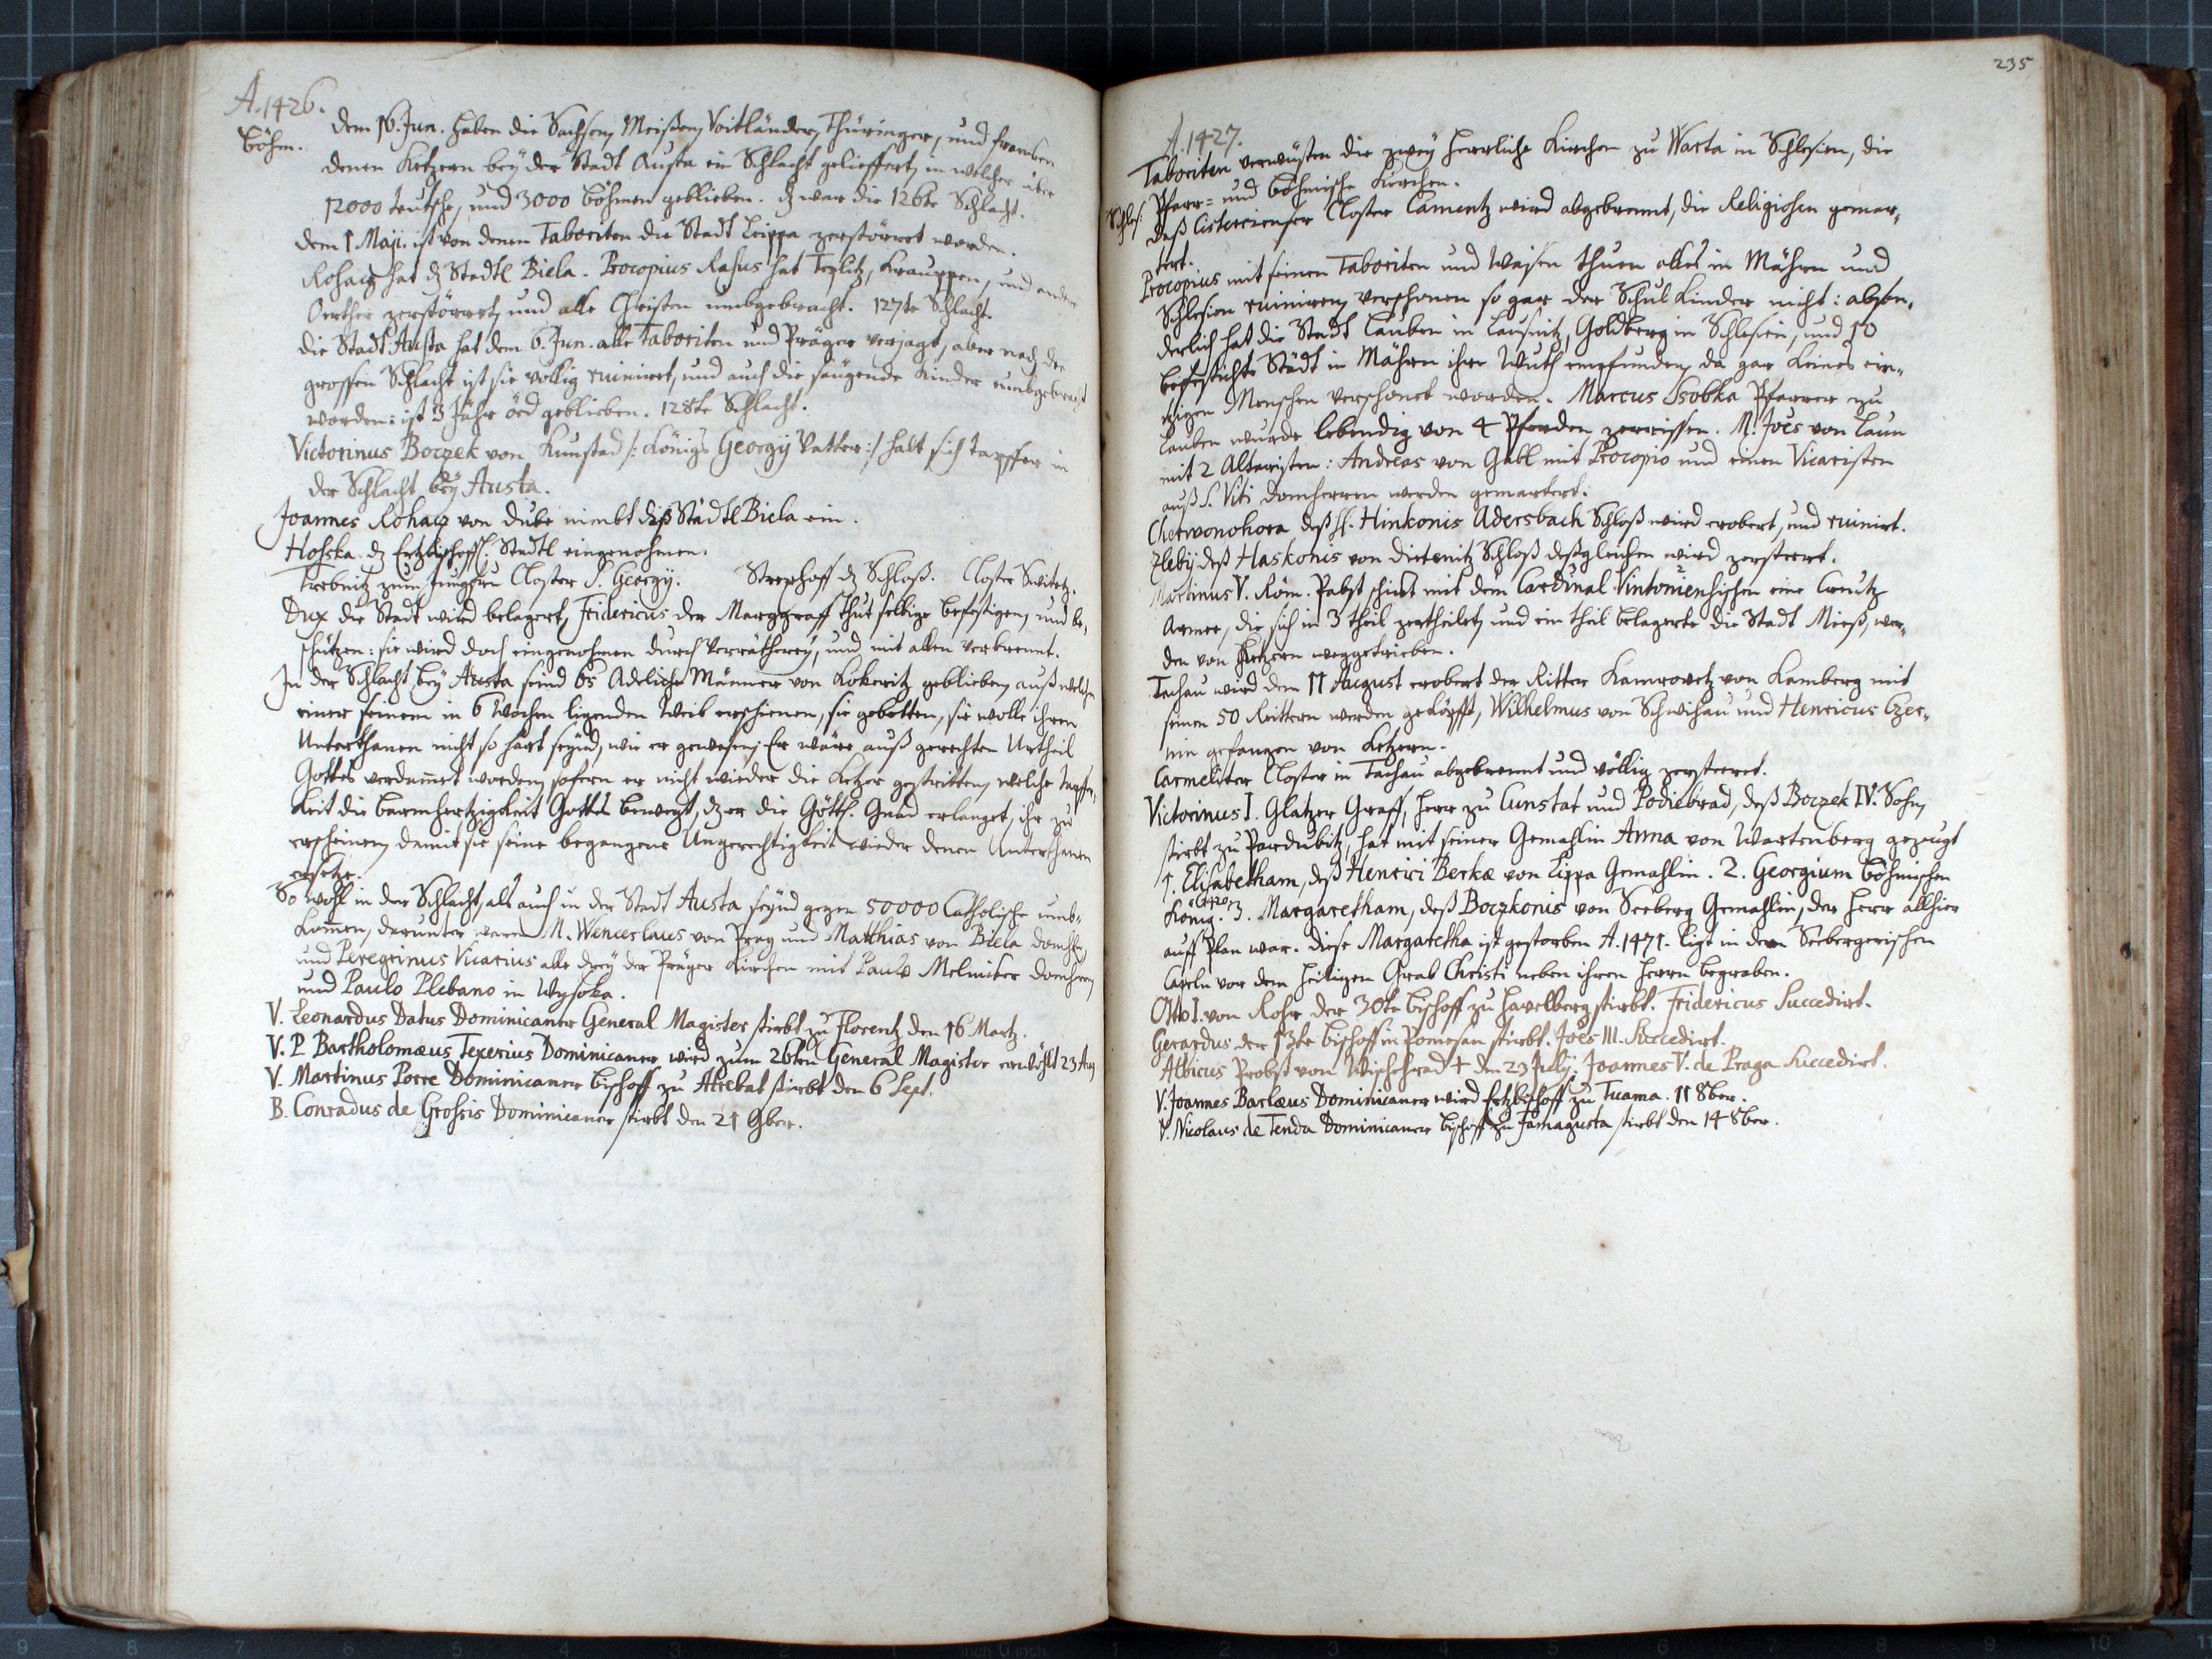 A. 1426.
Böhm.
Dem 16. Jun. haben die Sachsen, Meißen, Voitländer, Thüringer, und Francken
denen Ketzern bey der Stadt Austa ein Schlacht geliefert, in welcher über
12000 Teutsche, und 3000 Böhmen geblieben. dz war die 126te Schlacht.
Dem 1 Maji. ist von denen Taboriten die Stadt Leippa zerstörret worden.
Rohacz hat dz Stadtl Biela. Procopius Rasus hat Teplitz, Krauppen, und andere
Oerther zerstörret, und alle Christen umbgebracht. 127te Schlacht.
Die Stadt Austa hat dem 6. Jun. alle Taboriten und Präger verjagt, aber nach der
grossen Schlacht ist sie völlig ruiniret, und auch die säugende Kinder umbgebracht
worden: ist 3 Jahr öed geblieben. 128te Schlacht.
Victorinus Boczek von Kunstad /: Königs Georgÿ Vatter :/ halt sich tapffer in
der Schlacht beÿ Austa.
Joannes Rohacz von Dube nimbt diß Stadtl Biela ein.
Hosska dz Ertzbischoffl. Stadtl eingenohmen.
Trebnitz zum Jungfru Closter S. Georgÿ. dz Schloß. Closter Switetz.
Dux die Stadt wird belagert, Fridericus der Marggraff thut selbige befestigen, und be-
schützen: sie wird doch eingenohmen durch Verrätherey, und mit allen verbrennt.
In der Schlacht beÿ Austa seind 65 Adeliche Männer von Kokeritz geblieben, auß welchen
einer seinem in 6 Wochen ligenden Weib erschienen, sie gebetten, sie wolle ihren
Unterthanen nicht so hart seÿnd, wie er gewesen; Er wäre auß gerechten Urtheil
Gottes verdammet worden, sofern er nicht wieder die Ketzer gestritten, welche Tapffer-
keit die Barmhertzigkeit Gottes bewegt, dz er die Göttl. Gnad erlanget, ihr zu
erscheinen, damit sie seine begangene Ungerechtigkeit wieder denen Unterthanen
ersetze.
So wohl in der Schlacht, als auch in der Stadt Austa seÿnd gegen 50000 Catholische umb-
kommen, darunter waren M. Wenceslaus von Prag und Matthias von Biela Domhln,
und Peregrinus Vicarius alle dreÿ der Präger Kirchen mit Paulo Melniker Domhern,
und Paulo Plebano in Wysoka.
V. Leonardus Datus Dominicaner General Magister stirbt zu Florentz den 16 Martz.
V. P. Bartholomæus Texerius Dominicaner wird zum 26ten General Magister erwöhlt 23 Aug
V. Martinus Porre Dominicaner Bischoff zu Atrebat stirbt den 6 Sept.
B. Conradus de Grossis Dominicaner stirbt den 21 9ber.
235
A. 1427.
Taboriten verwüsten die zweÿ herrliche Kirchen zu Warta in Schlesien, die
Pfarr= und Böhmische Kirchen.
Schles:
Daß Cistercienser Closter Camentz wird abgebrennt, die Religiosen gemar-
tert.
Procopius mit seinen Taboriten und Waisen thuen alles in Mähren und
Schlesien ruiniren, verschonen so gar der Schul Kinder nicht: abson-
derlich hat die Stadt Lauben in Lausnitz, Goldberg in Schlesien, und 10
befestichte Städt in Mähren ihre Wuth empfunden, da gar keines ein-
zigen Menschen verschonet worden. Marcus Ssobka Pfarrer zu
Lauben wurde lebendig von 4 Pferden zerrissen. M. Joës von Laun
mit 2 Altaristen: Andreas von Gabl mit Procopio und einen Vicaristen
auß S. Viti Domherren werden gemartert.
Cherwonohora deß H. Hinkonis Adersbach Schloß wird erobert, und ruinirt.
Zlebÿ deß Haskonis von Dietenitz Schloß deßgleichen wird zersteert.
Martinus V. Röm. Pabst schickt mit dem Cardinal Vintoniensischen eine Creutz
Armee, die sich in 3 theil zertheilet, und ein theil belagerte die Stadt Mieß, wer-
den von Ketzern weggetrieben.
Tachau wird dem 11 August erobert der Ritter Kamrovetz von Kamberg mit
seinen 50 Reittern werden geköpfft, Wilhelmus von Schwihau und Henricus Czer-
nin gefangen von Ketzern.
Carmeliter Closter in Tachau abgebrennt und völlig zersteeret.
Victorinus I. Glatzer Graff, Herr zu Cunstat und Podiebrad, deß Boczek IV. Sohn,
stirbt zu Pardubitz, hat mit seiner Gemahlin Anna von Wartenberg gezeugt
1. Elisabetham, deß Henrici Berkæ von Lippa Gemahlin. 2. Georgium Böhmischen
König. 3. Margaretham, deß Boczkonis von Seeberg Gemahlin, der Herr allhier
auff Plan war. Diese Margaretha ist gestorben A. 1471. ligt in dern Seebergerischen
Capeln vor dem heiligen Grab Christi neben ihren Herrn begraben.
Otto I. von Rohr der 30te Bischoff zu Havelberg stirbt. Fridericus Succedirt.
Gerardus der 13te Bischoff in Pomesan stirbt. Joës III. Succedirt.
Albicus Probst von Wischehrad † den 23 Julÿ. Joannes V. de Praga Succedirt.
V. Joannes Barlæus Dominicaner wird Ertzbischoff zu Tuama. 11 8ber.
V. Nicolaus de Tenda Dominicaner Bischoff zu Famagusta stirbt den 14 8ber.